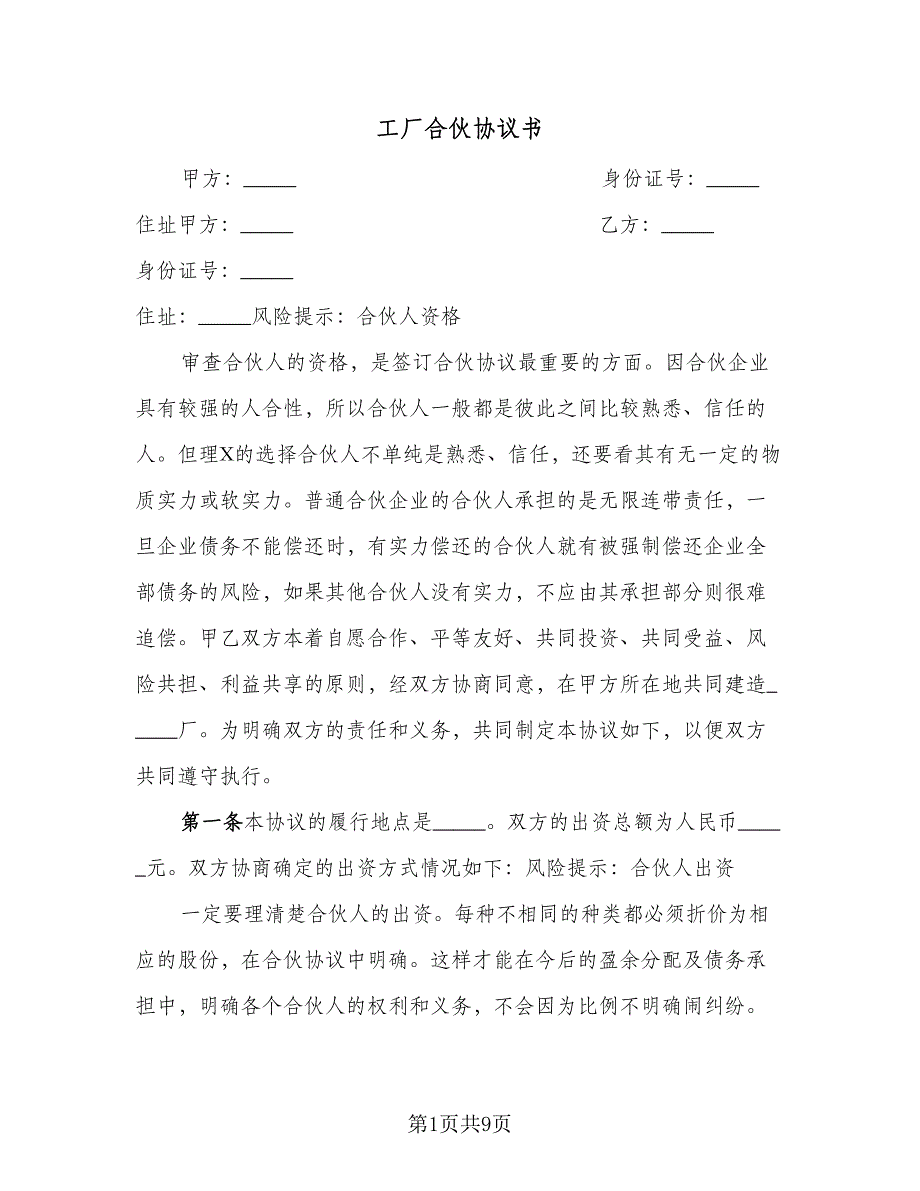 工厂合伙协议书
甲方：_____ 身份证号：_____
住址甲方：_____ 乙方：_____
身份证号：_____
住址：_____风险提示：合伙人资格
审查合伙人的资格，是签订合伙协议最重要的方面。因合伙企业
具有较强的人合性，所以合伙人一般都是彼此之间比较熟悉、信任的
人。但理X的选择合伙人不单纯是熟悉、信任，还要看其有无一定的物
质实力或软实力。普通合伙企业的合伙人承担的是无限连带责任，一
旦企业债务不能偿还时，有实力偿还的合伙人就有被强制偿还企业全
部债务的风险，如果其他合伙人没有实力，不应由其承担部分则很难
追偿。甲乙双方本着自愿合作、平等友好、共同投资、共同受益、风
险共担、利益共享的原则，经双方协商同意，在甲方所在地共同建造_
____厂。为明确双方的责任和义务，共同制定本协议如下，以便双方
共同遵守执行。
第一条本协议的履行地点是_____。双方的出资总额为人民币____
_元。双方协商确定的出资方式情况如下：风险提示：合伙人出资
一定要理清楚合伙人的出资。每种不相同的种类都必须折价为相
应的股份，在合伙协议中明确。这样才能在今后的盈余分配及债务承
担中，明确各个合伙人的权利和义务，不会因为比例不明确闹纠纷。
第1页共9页